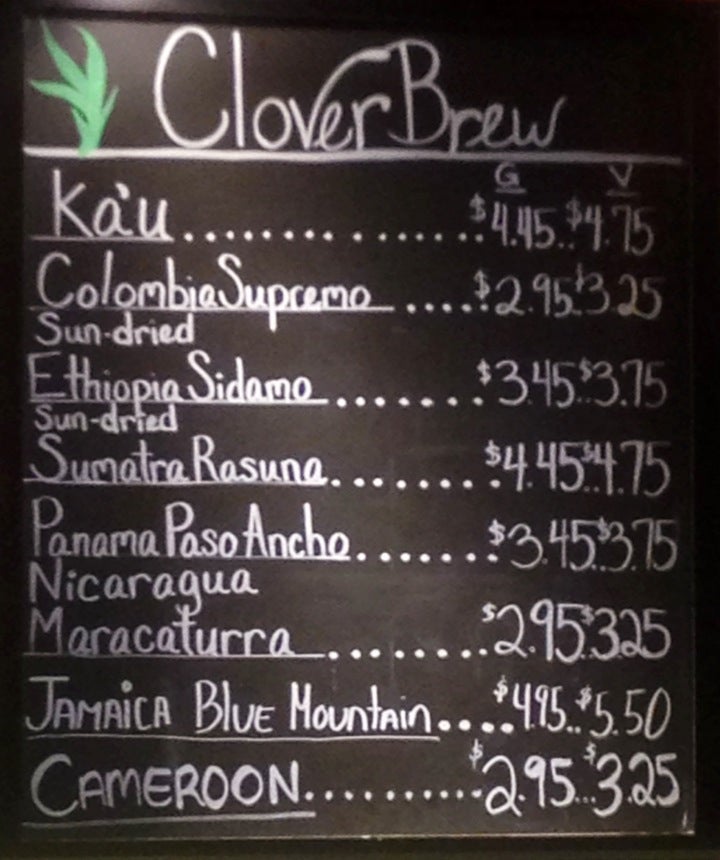 Clover Brew
G V
Ka'u.................$4.45..$4.75
Colombia Supremo.....$2.95.$3.25
Sun-dried
Ethiopia Sidamo........$3.45.$3.75
Sun-dried
Sumatra Rasuna.........$4.45.$4.75
Panama Paso Ancho.......$3.45.$3.75
Nicaragua
Maracaturra.........$2.95.$3.25
JAMAICA BLUE MOUNTAIN....$4.95..$5.50
CAMEROON..........$2.95...$3.25